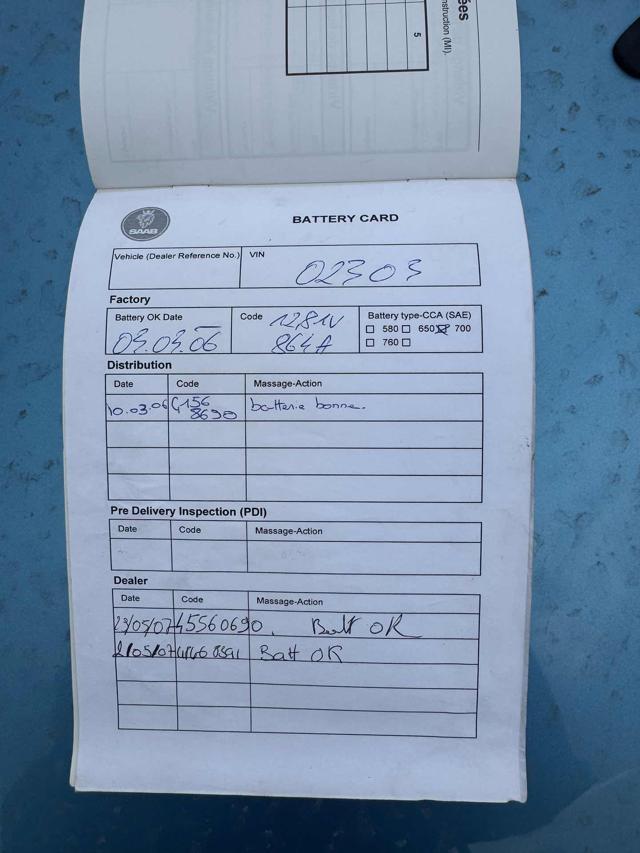 ées
nstruction (MI).
5
SAAB
BATTERY CARD
Vehicle (Dealer Reference No.) VIN
02303
Factory
Battery OK Date Code Battery type-CCA (SAE)
12,81V
580 650 700
864A
760
Distribution
Date Code Massage-Action
10.03.06 G156 batterie bonne.
8690
Pre Delivery Inspection (PDI)
Date Code Massage-Action
Dealer
Date Code Massage-Action
23/05/07 45560690. Batt OK
Batt OK